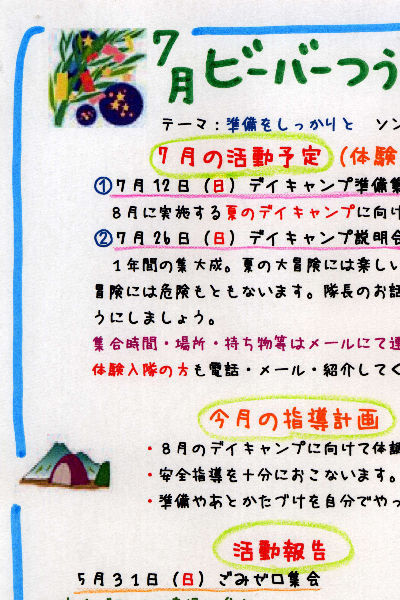 7月 ビーバーつう
テーマ：準備をしっかりと ソン
7月の活動予定 (体験
①7月12日（日）デイキャンプ準備集
8月に実施する夏のデイキャンプに向け
②7月26日（日）デイキャンプ説明会
1年間の集大成。夏の大冒険には楽しい
冒険には危険もともないます。隊長のお話
うにしましょう。
集合時間・場所・持ち物等はメールにて連
体験入隊の方も電話・メール・紹介してく
今月の指導計画
・8月のデイキャンプに向けて体調
・安全指導を十分におこないます。
・準備やあとかたづけを自分でやっ
活動報告
5月31日（日）ごみゼロ集会